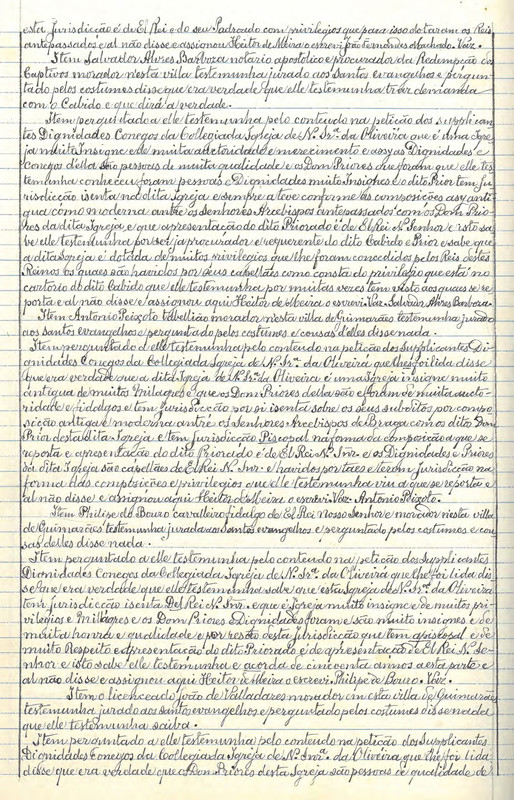 esta Jurisdicção é de El Rei e do seu Padroado com privilegios que para isso dotaram os Reis
antepassados e al não disse e assignou Heitor de Meira o escrevi João Fernandes Machado. Vaz.
Item Salvador Alvres Barboza notario apostolico e procurador da Redempção dos
Captivos morador n'esta villa testemunha jurado aos Santos evangelhos e pergun-
tado pelos costumes disse que era verdade que elle testemunha traz demanda
com o Cabido e que dirá a verdade.
Item perguntado a elle testemunha pelo conteudo na petição dos supplican-
tes Dignidades Conegos da Collegiada Igreja de N. Srª. da Oliveira que é uma Igre-
ja muito Insigne e de muita auctoridade e merecimento e assy as Dignidades e
Conegos d'ella são pessoas de muita qualidade e os Dom Priores que foram que elle tes-
temunha conheceu foram pessoas e Dignidades muito Insignes e o dito Prior tem Ju-
risdicção isenta na dita Igreja e sempre a teve conforme as composições assy anti-
gua como moderna antre os Senhores Arcebispos antepassados com os Dom Prio-
res da dita Igreja, e que apresentação do dito Priorado é de El Rei N. Senhor e isto sa-
be elle testemunha por ser já procurador e requerente do dito Cabido e Prior e sabe que
a dita Igreja é dotada de muitos privilegios que lhe foram concedidos pelos Reis destes
Reinos os quaes são havidos por seus capellães como consta do privilegio que está no
cartorio do dito Cabido que elle testemunha por muitas vezes tem visto aos quaes se re-
porta e al não disse e assignou aqui Heitor de Meira o escrevi. Vaz. Salvador Alvres Barboza.
Item Antonio Peixoto tabellião morador n'esta villa de Guimarães testemunha jurado
aos santos evangelhos e perguntado pelos costumes e cousas d'elles disse nada.
Item perguntado a elle testemunha pelo conteudo na petição dos Supplicantes Di-
gnidades Conegos da Collegiada Igreja de N. Srª. da Oliveira que lhes foi lida disse
que era verdade que a dita Igreja de N. Srª. da Oliveira é uma Igreja insigne muito
antigua de muitos milagres e que os Dom Priores della são e foram de muita aucto-
ridade e fidalgos e tem Jurisdicção por si isenta sobre os seus subditos por compo-
sição antiga e moderna antre os Senhores Arcebispos de Braga com os ditos Dom
Prior desta dita Igreja e tem Jurisdicção Piscopal na forma da composição a que se
reporta e apresentação do dito Priorado é de El Rei N. Snr. e os Dignidades e Priores
da dita Igreja são capellães de El Rei N. Snr. e havidos por taes e terem jurisdicção na
forma das composições e privilegios que elle testemunha viu a que se reporta e
al não disse e assignou aqui Heitor de Meira o escrevi. Vaz. Antonio Peixoto.
Item Philipe do Bouro cavalleiro fidalgo de El Rei Nosso Senhor e morador nesta villa
de Guimarães testemunha jurada aos santos evangelhos e perguntado pelos costumes e cou-
sas delles disse nada.
Item perguntado a elle testemunha pelo conteudo na petição dos Supplicantes
Dignidades Conegos da Collegiada Igreja de N. Srª. da Oliveira que lhe foi lida dis-
se que era verdade que elle testemunha sabe que esta Igreja de N. Srª. da Oliveira
tem jurisdicção isenta Del Rei N. Snr. e que é Igreja muito insigne e de muitos pri-
vilegios e Milagres e os Dom Priores e Dignidades foram e são muito insignes e de
muita honra e qualidade e por resão desta jurisdicção que tem episcopal e de
muito Respeito e apresentação do dito Priorado é de apresentação de El Rei N. Se-
nhor e isto sabe elle testemunha e acorda de cincoenta annos a esta parte e
al não disse e assignou aqui Heitor de Meira o escrevi. Philipe do Bouro. Vaz.
Item o licenceado João de Valladares morador em esta villa de Guimarães
testemunha jurado aos santos evangelhos e perguntado pelos costumes disse nada
que elle testemunha saiba.
Item perguntado a elle testemunha pelo conteudo na petição dos Supplicantes
Dignidades Conegos da Collegiada Igreja de N. Snrª. da Oliveira que lhe foi lida
disse que era verdade que os Dom Priores desta Igreja são pessoas de qualidade de